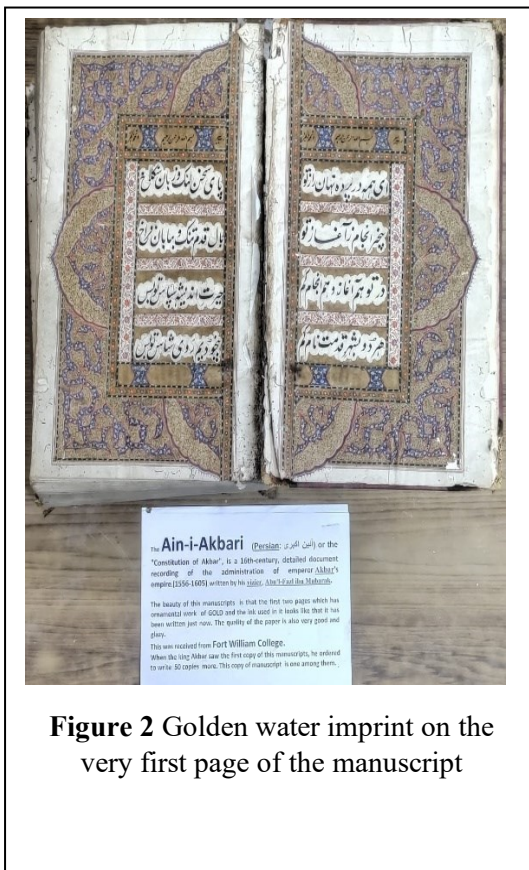 ای همه در پرده نهان راز تو
بیخبر انجام ز آغاز تو
در تو هم آغاز و هم انجام گم
هر دو بشهر قدمت نام گم
پای سخن لنگ و
قدم تنگ و بیابان فراخ
حیرت اندیشه سپاس تو بس
روی شناس تو بس
The Ain-i-Akbari (Persian: آئین اکبری) or the
"Constitution of Akbar", is a 16th-century, detailed document
recording of the administration of emperor Akbar's
empire.(1556-1605) written by his vizier, Abu'l-Fazl ibn Mubarak.
The beauty of this manuscripts is that the first two pages which has
ornamental work of GOLD and the ink used in it looks like that it has
been written just now. The quality of the paper is also very good and
glazy.
This was received from Fort William College.
When the king Akbar saw the first copy of this manuscripts, he ordered
to write 50 copies more. This copy of manuscript is one among them.
Figure 2 Golden water imprint on the
very first page of the manuscript